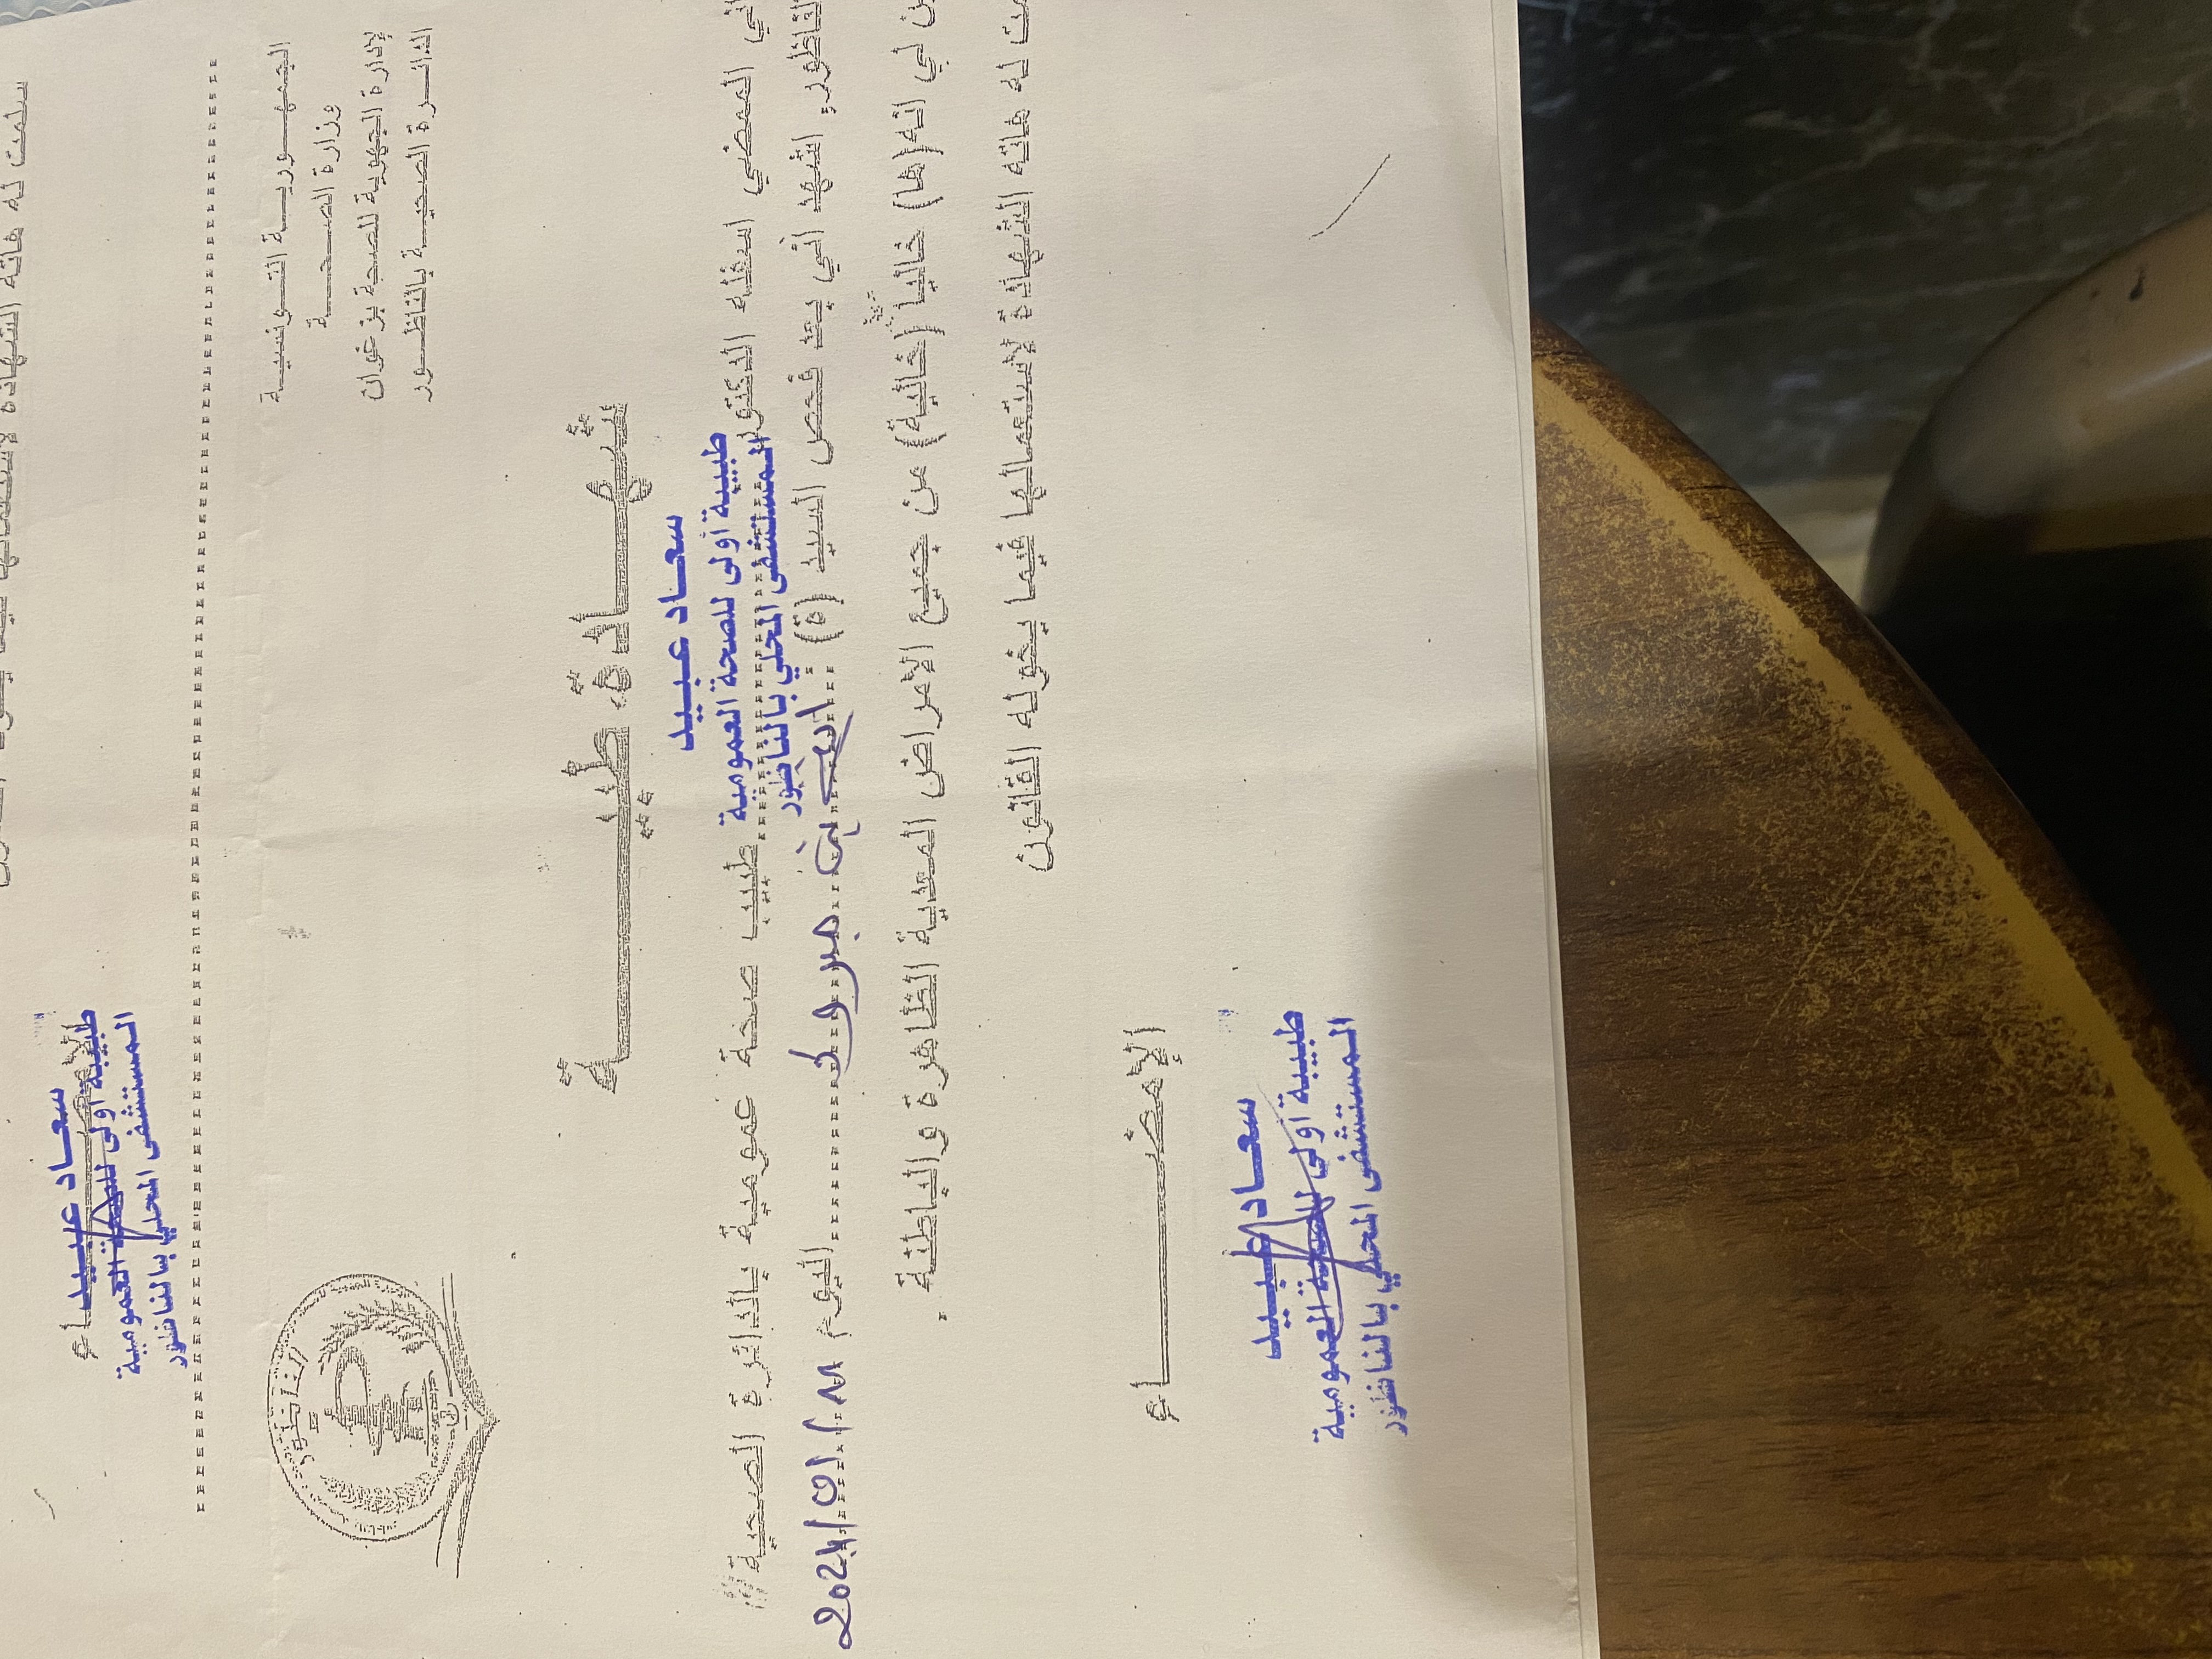 سلمت له هاته الشهادة لاستعمالها فيما يخوله القانون
الإمضــاء
سعاد عبيد
طبيبة أولى للصحة العمومية
المستشفى المحلي بالناظور
الجمهورية التونسية
وزارة الصحة
الإدارة الجهوية للصحة بزغوان
الدائرة الصحية بالناظور
الناظور
شهادة طبية
سعاد عبيد
طبيبة أولى للصحة العمومية
المستشفى المحلي بالناظور
إني الممضي اسفله الدكتور طبيب صحة عمومية بالدائرة الصحية
بالناظور، اشهد أني بعد فحص السيد (ة) : بن اليوم 2024/
لي انه(ها) خاليا (خالية) من جميع الامراض المعدية الظاهرة والباطنة .
سلمت له هاته الشهادة لاستعمالها فيما يخوله القانون
الإمضــاء
سعاد عبيد
طبيبة أولى للصحة العمومية
المستشفى المحلي بالناظور